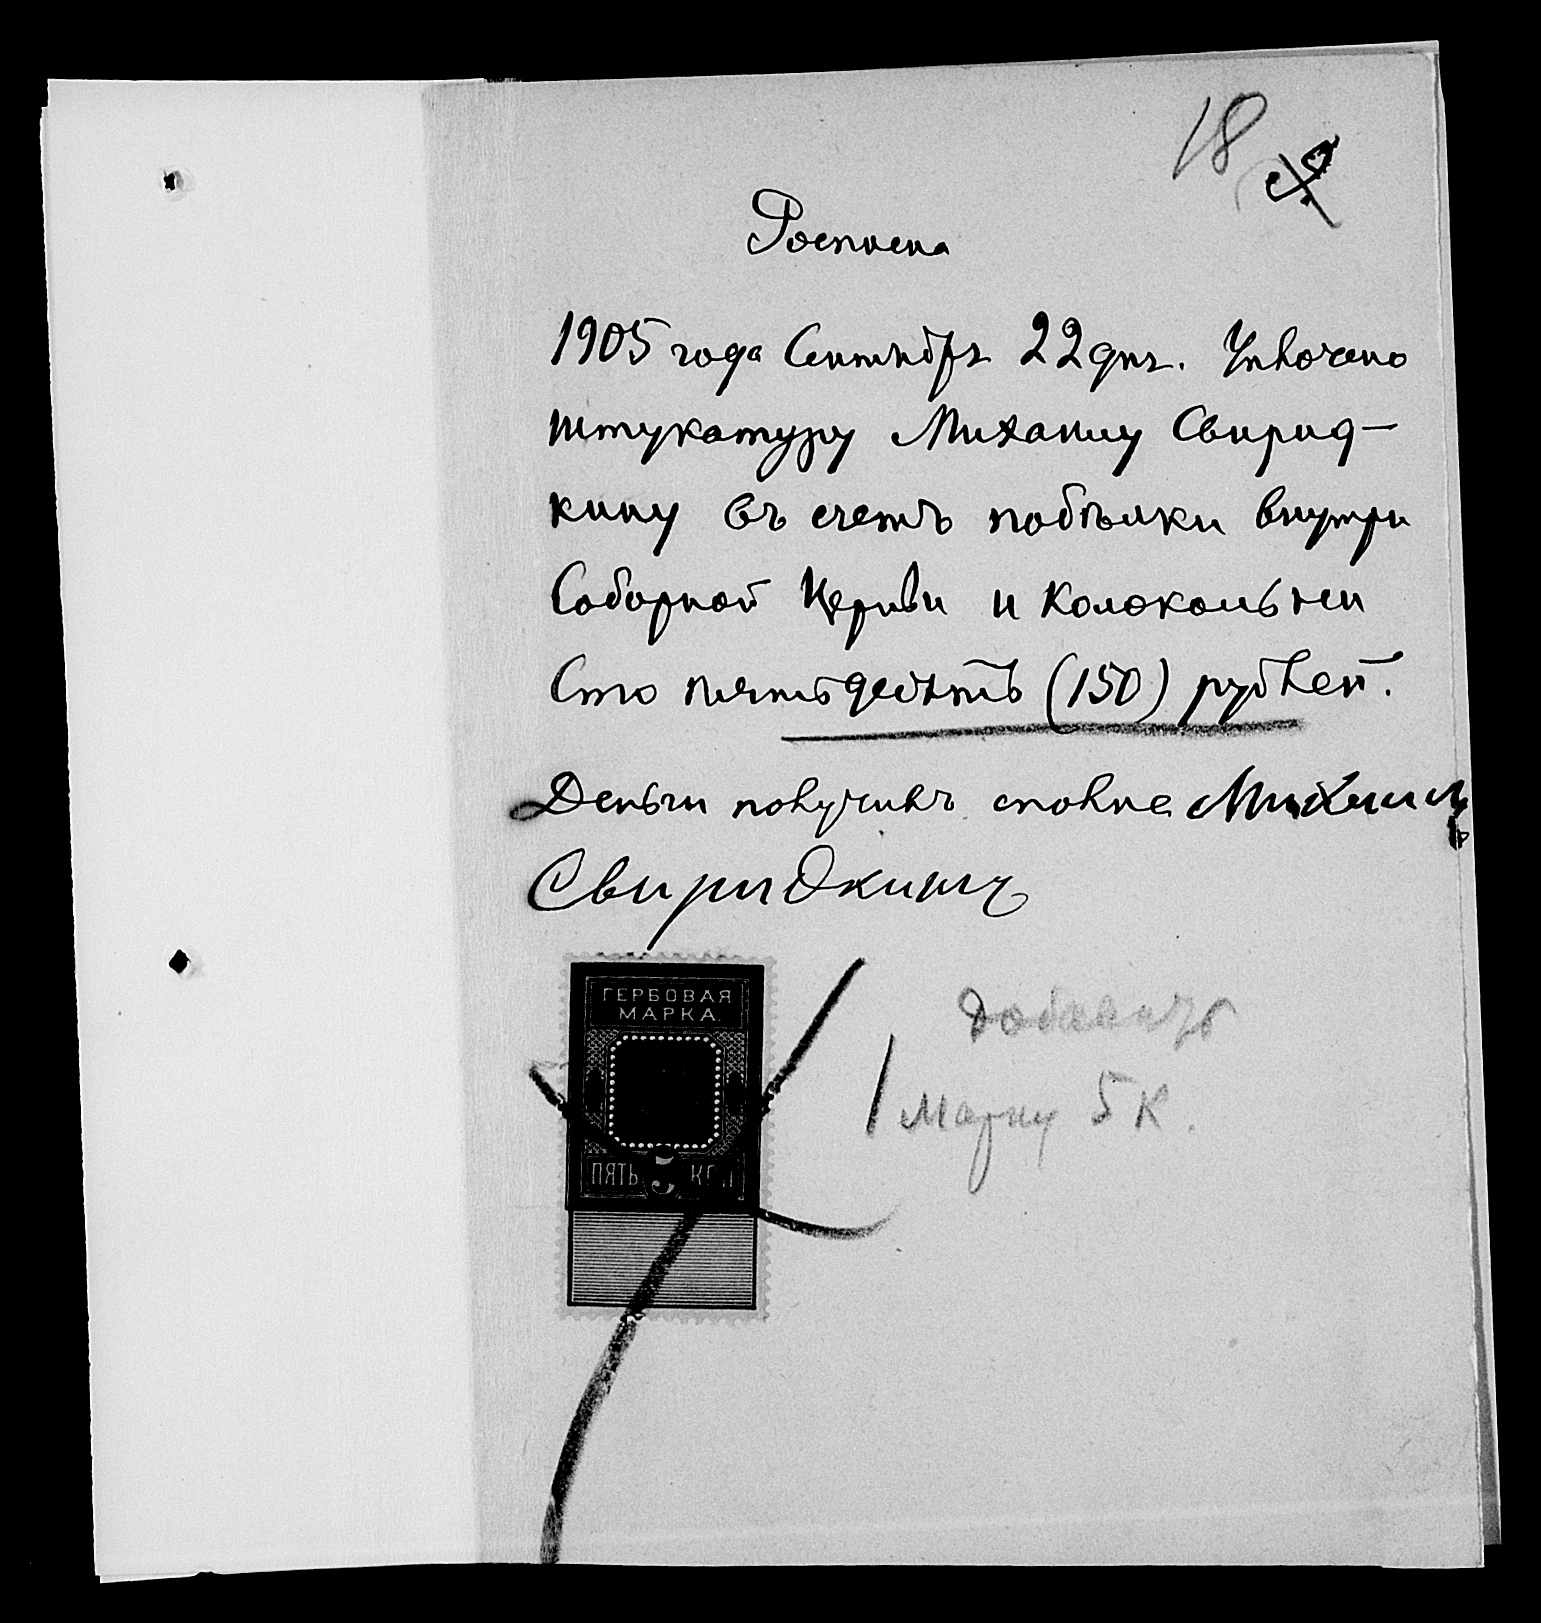 18
Росписка
1905 года Сентябрь 22 дня. Уплочено
штукатуру Михаилу Сварид-
кину въ счетъ побѣлки внутри
Соборной Церкви и Колокольни
Сто пятьдесятъ (150) рублей.
Деньги получилъ сполна Михаилъ
Свиридкинъ
ГЕРБОВАЯ
МАРКА.
ПЯТЬ 5 КОП
Добавить
марку 5 к.